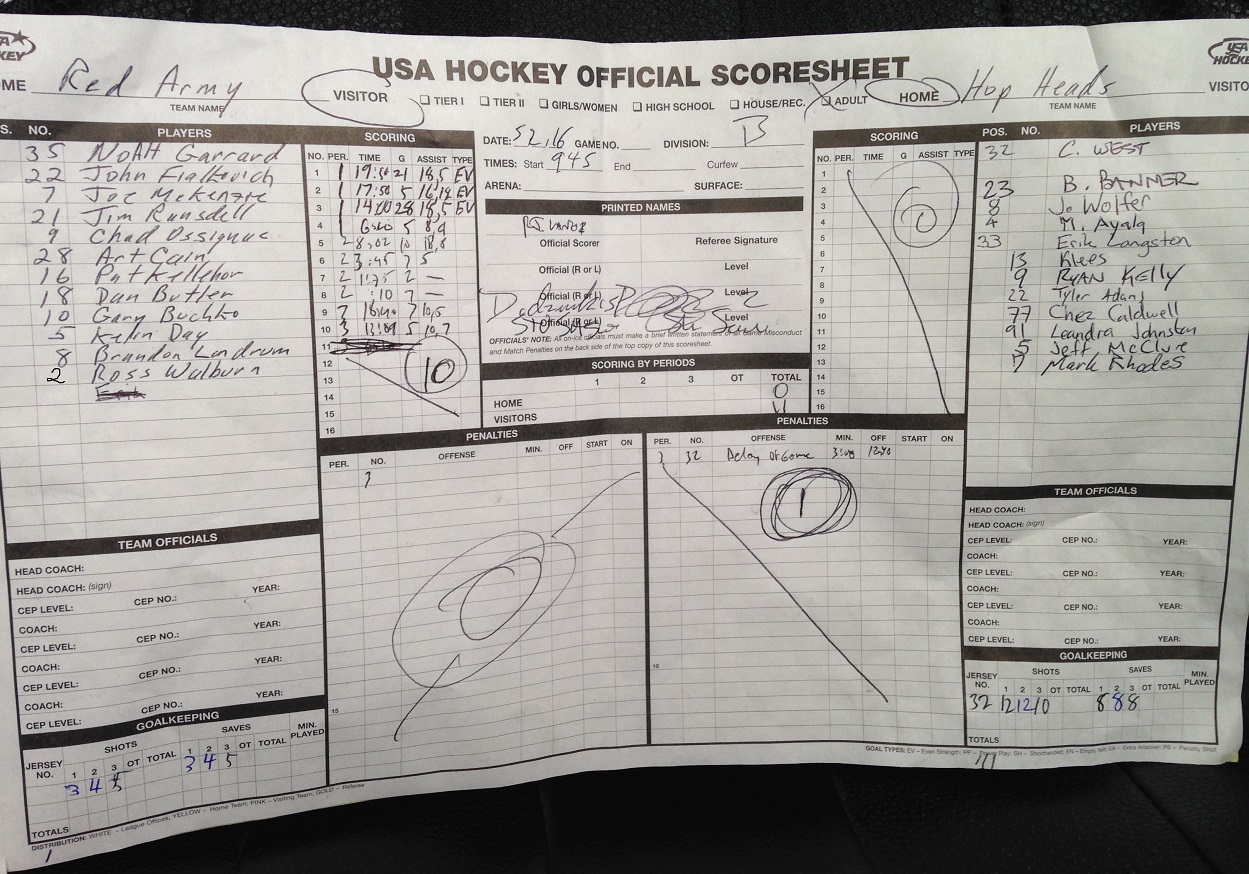 USA HOCKEY OFFICIAL SCORESHEET
Red Army
TEAM NAME
VISITOR
TIER I TIER II GIRLS/WOMEN HIGH SCHOOL HOUSE/REC. ADULT
HOME
Hop Heads
TEAM NAME
VISITO
NO. PLAYERS
35 NOAH Garrard
22 John Fialkovich
7 Joe McKenzie
21 Jim Ransdell
9 Chad
28 Art Cain
16 Pat Kelleher
18 Dan Butler
10 Gary Buchko
5 Kevin Day
8 Brandon Landrum
2 Ross Walburn
SCORING
NO. PER. TIME G ASSIST TYPE
1 1 19:50 21 18,5 EV
2 1 17:50 5 16,18 EV
3 1 14:00 28 18,5 EV
4 1 5 8,9
5 2 8:02 10 18,8
6 2 3:45 7 5
7 2 2 —
8 2 :10 7 —
9 3 7 10,5
10 3 5 10,7
11
12
13
14
15
16
10
DATE: 5 2,16 GAME NO. DIVISION: B
TIMES: Start 945 End Curfew
ARENA: SURFACE:
PRINTED NAMES
Official Scorer Referee Signature
Official (R or L) Level
Official (R or L) Level 2
Official (R or L) Level
OFFICIALS' NOTE: All on-ice officials must make a brief written statement of all Game Misconduct
and Match Penalties on the back side of the top copy of this scoresheet.
SCORING BY PERIODS
1 2 3 OT TOTAL
HOME 0
VISITORS
SCORING
NO. PER. TIME G ASSIST TYPE
1
2
3
4
5
6
7
8
9
10
11
12
13
14
15
16
0
POS. NO. PLAYERS
32 C. WEST
23 B. BANNER
8 J. Wolfer
4 M. Ayala
33 Erik Langston
13 Klees
9 RYAN KELLY
22 Tyler Adams
77 Chez Caldwell
91 Leandra Johnston
5 Jeff McClure
7 Mark Rhodes
PENALTIES
PER. NO. OFFENSE MIN. OFF START ON
0
15
PENALTIES
PER. NO. OFFENSE MIN. OFF START ON
3 32 Delay Of Game 3:00
1
15
TEAM OFFICIALS
HEAD COACH:
HEAD COACH: (sign)
CEP LEVEL: CEP NO.: YEAR:
COACH:
CEP LEVEL: CEP NO.: YEAR:
COACH:
CEP LEVEL: CEP NO.: YEAR:
COACH:
CEP LEVEL: CEP NO.: YEAR:
GOALKEEPING
JERSEY NO. SHOTS SAVES MIN. PLAYED
1 2 3 OT TOTAL 1 2 3 OT TOTAL
3 4 5 3 4 5
TOTALS
DISTRIBUTION: WHITE – League Offices, YELLOW – Home Team, PINK – Visiting Team, GOLD – Referee
TEAM OFFICIALS
HEAD COACH:
HEAD COACH: (sign)
CEP LEVEL: CEP NO.: YEAR:
COACH:
CEP LEVEL: CEP NO.: YEAR:
COACH:
CEP LEVEL: CEP NO.: YEAR:
COACH:
CEP LEVEL: CEP NO.: YEAR:
GOALKEEPING
JERSEY NO. SHOTS SAVES MIN. PLAYED
1 2 3 OT TOTAL 1 2 3 OT TOTAL
32 12 12 10 8 8 8
TOTALS
GOAL TYPES: EV – Even Strength; PP – Power Play; SH – Shorthanded; EN – Empty Net; EA – Extra Attacker; PS – Penalty Shot